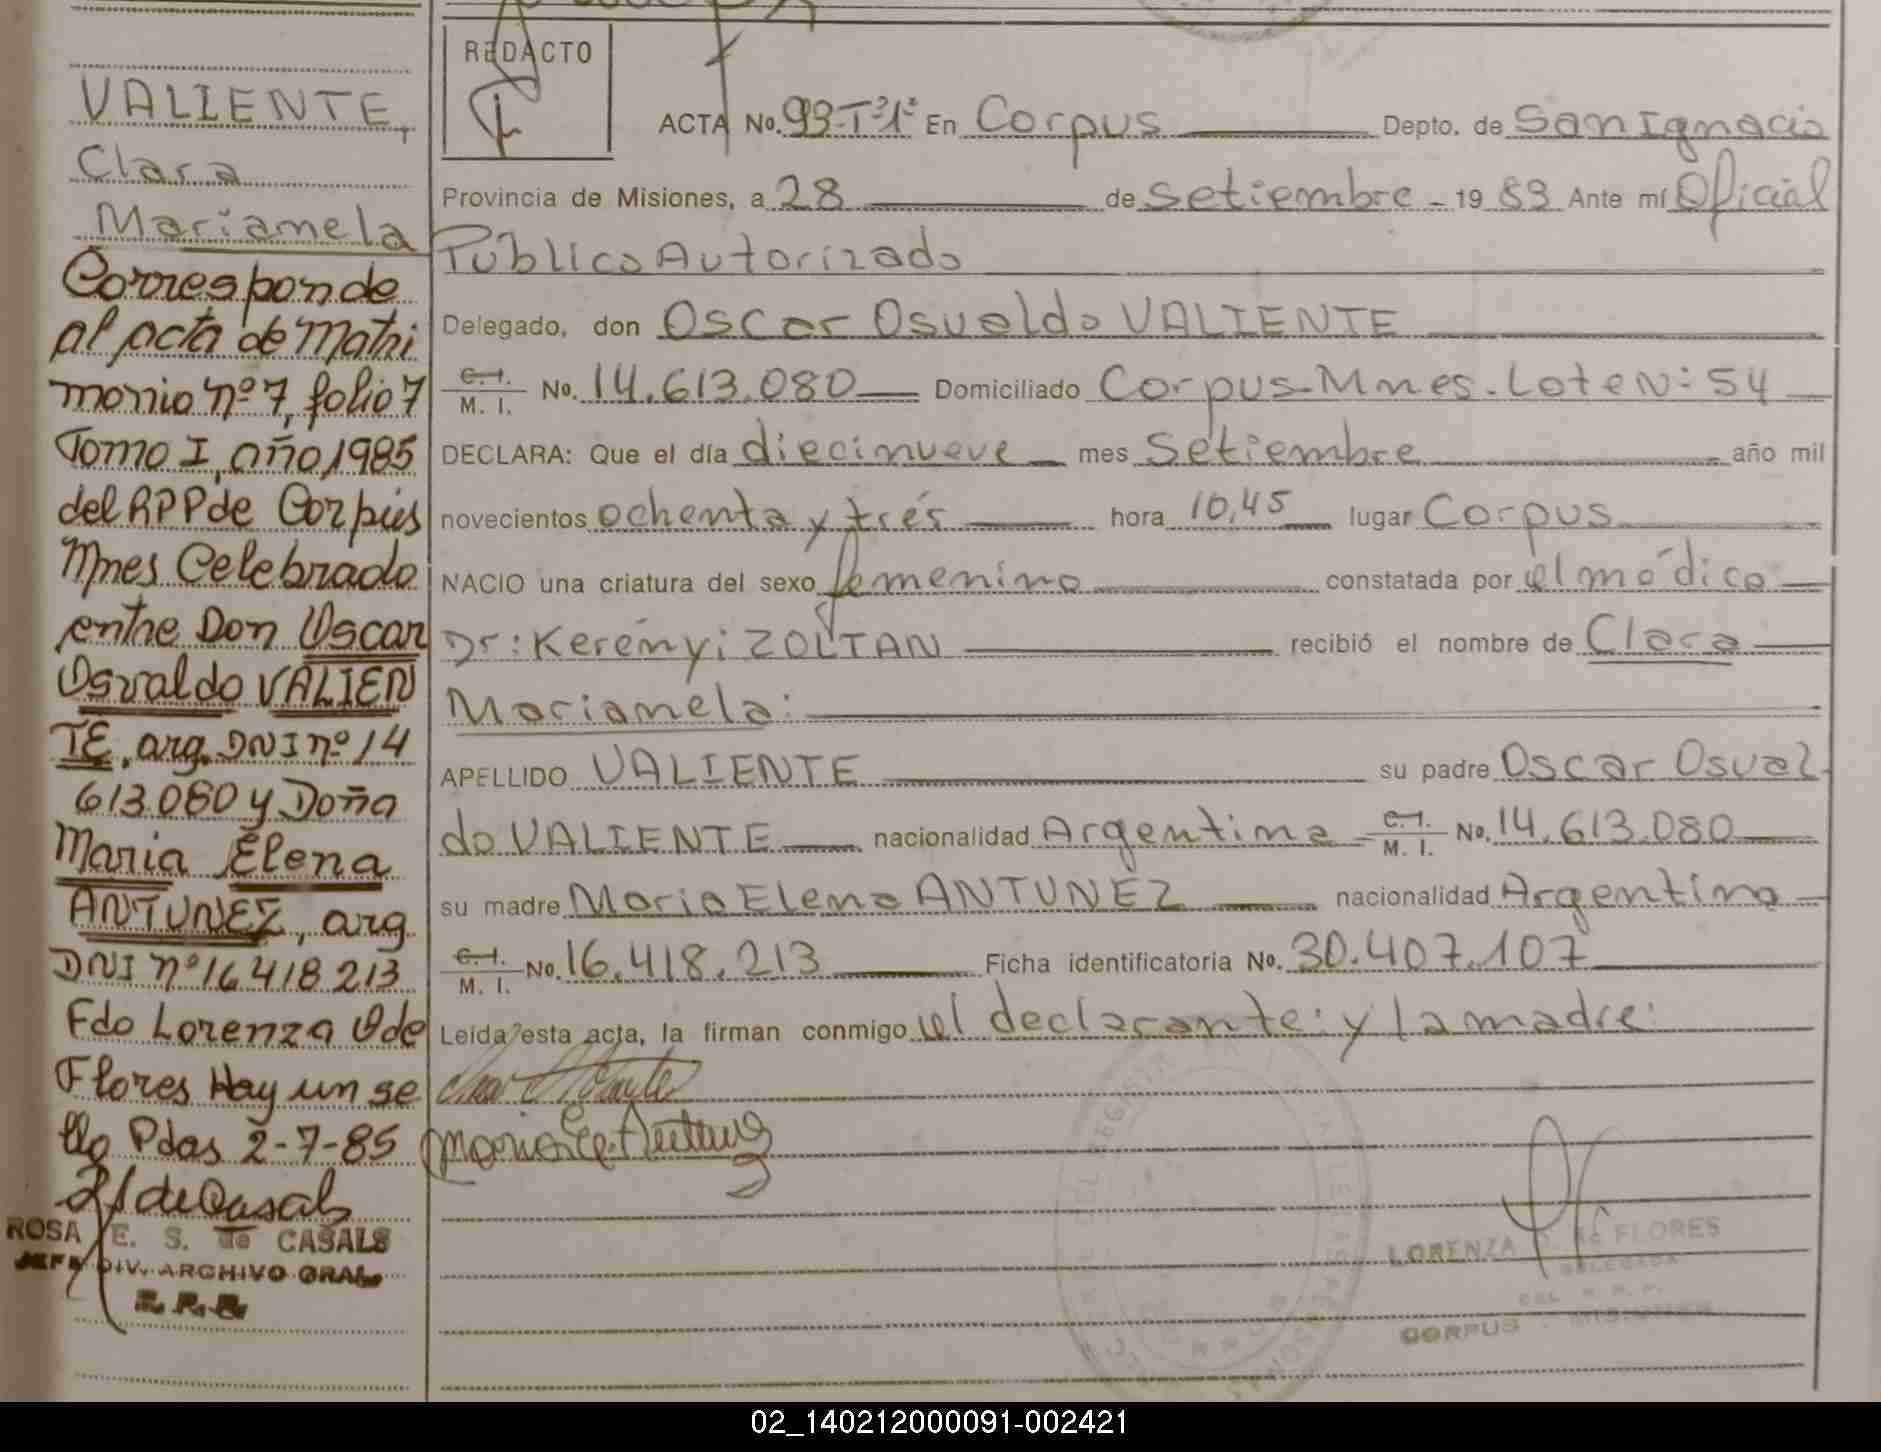 VALIENTE,
Clara
Mariamela
Corresponde
al acta de Matri
monio nº 7, folio 7
Tomo I, año 1985
del RPP de Corpus
Mnes Celebrado
entre Don Oscar
Osvaldo VALIEN
TE, arg. DNI nº 14
613.080 y Doña
Maria Elena
ANTUNEZ, arg
DNI nº 16 418 213
Fdo Lorenza O de
Flores Hay un se
llo Pdas 2-7-85
ROSA E. S. de CASALS
JEFA DIV. ARCHIVO GRAL
REDACTO
ACTA No. 93-Tº1º En Corpus Depto. de San Ignacio
Provincia de Misiones, a 28 de Setiembre - 19 83 Ante mí Oficial
Público Autorizado
Delegado, don Oscar Osvaldo VALIENTE
C.I. M. I. No. 14.613.080 Domiciliado Corpus-Mnes.-Lote N: 54
DECLARA: Que el día diecinueve mes Setiembre año mil
novecientos ochenta y trés hora 10,45 lugar Corpus
NACIO una criatura del sexo femenino constatada por el médico
Dr: Kerényi ZOLTAN recibió el nombre de Clara
Mariamela:
APELLIDO VALIENTE su padre Oscar Osval
do VALIENTE nacionalidad Argentina C.I. M. I. No. 14.613.080
su madre Maria Elena ANTUNEZ nacionalidad Argentina
C.I. M. I. No. 16.418.213 Ficha identificatoria No. 30.407.107
Leída esta acta, la firman conmigo el declarante: y la madre:
LORENZA O. de FLORES
DELEGADA
DEL R. P. P.
CORPUS - MISIONES
02_140212000091-002421